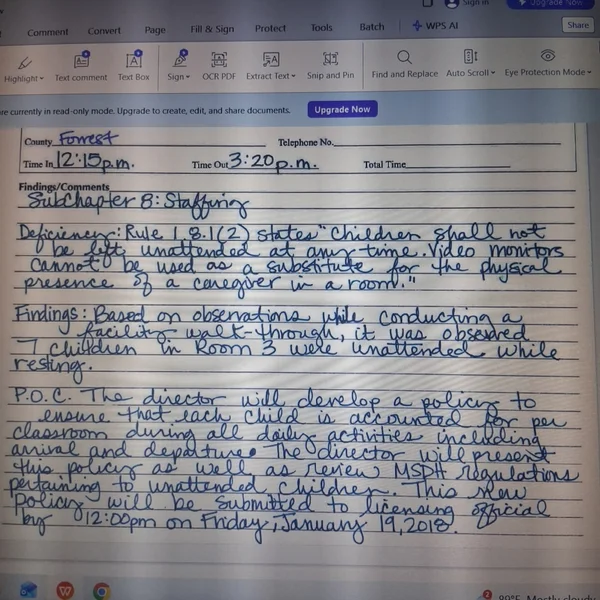 Sign in
Upgrade Now
Comment Convert Page Fill & Sign Protect Tools Batch WPS AI Share
Highlight Text comment Text Box Sign OCR PDF Extract Text Snip and Pin Find and Replace Auto Scroll Eye Protection Mode
re currently in read-only mode. Upgrade to create, edit, and share documents. Upgrade Now
County Forrest Telephone No.
Time In 12:15p.m. Time Out 3:20p.m. Total Time
Findings/Comments
SubChapter 8: Staffing
Deficiency: Rule 1.8.1(2) states "Children shall not
be left unattended at any time. Video monitors
cannot be used as a substitute for the physical
presence of a caregiver in a room."
Findings: Based on observations while conducting a
facility walk-through, it was observed
7 children in Room 3 were unattended while
resting.
P.O.C. The director will develop a policy to
ensure that each child is accounted for per
classroom during all daily activities including
arrival and departure. The director will present
this policy as well as review MSDH regulations
pertaining to unattended children. This new
policy will be submitted to licensing official
by 12:00pm on Friday, January 19, 2018.
2
90°F Mostly cloudy